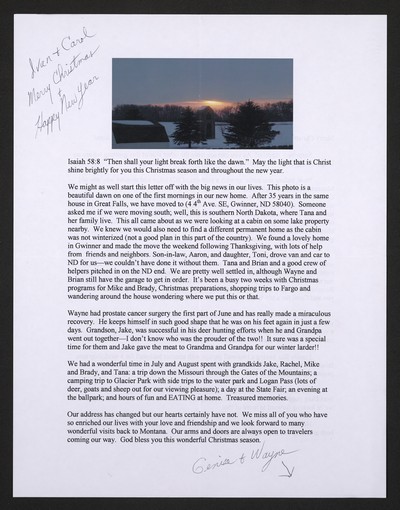 Ivan & Carol
Merry Christmas
&
Happy New Year
Isaiah 58:8 "Then shall your light break forth like the dawn." May the light that is Christ
shine brightly for you this Christmas season and throughout the new year.
We might as well start this letter off with the big news in our lives. This photo is a
beautiful dawn on one of the first mornings in our new home. After 35 years in the same
house in Great Falls, we have moved to (4 4th Ave. SE, Gwinner, ND 58040). Someone
asked me if we were moving south; well, this is southern North Dakota, where Tana and
her family live. This all came about as we were looking at a cabin on some lake property
nearby. We knew we would also need to find a different permanent home as the cabin
was not winterized (not a good plan in this part of the country). We found a lovely home
in Gwinner and made the move the weekend following Thanksgiving, with lots of help
from friends and neighbors. Son-in-law, Aaron, and daughter, Toni, drove van and car to
ND for us—we couldn't have done it without them. Tana and Brian and a good crew of
helpers pitched in on the ND end. We are pretty well settled in, although Wayne and
Brian still have the garage to get in order. It's been a busy two weeks with Christmas
programs for Mike and Brady, Christmas preparations, shopping trips to Fargo and
wandering around the house wondering where we put this or that.
Wayne had prostate cancer surgery the first part of June and has really made a miraculous
recovery. He keeps himself in such good shape that he was on his feet again in just a few
days. Grandson, Jake, was successful in his deer hunting efforts when he and Grandpa
went out together—I don't know who was the prouder of the two!! It sure was a special
time for them and Jake gave the meat to Grandma and Grandpa for our winter larder!!
We had a wonderful time in July and August spent with grandkids Jake, Rachel, Mike
and Brady, and Tana: a trip down the Missouri through the Gates of the Mountains; a
camping trip to Glacier Park with side trips to the water park and Logan Pass (lots of
deer, goats and sheep out for our viewing pleasure); a day at the State Fair; an evening at
the ballpark; and hours of fun and EATING at home. Treasured memories.
Our address has changed but our hearts certainly have not. We miss all of you who have
so enriched our lives with your love and friendship and we look forward to many
wonderful visits back to Montana. Our arms and doors are always open to travelers
coming our way. God bless you this wonderful Christmas season.
Genice & Wayne